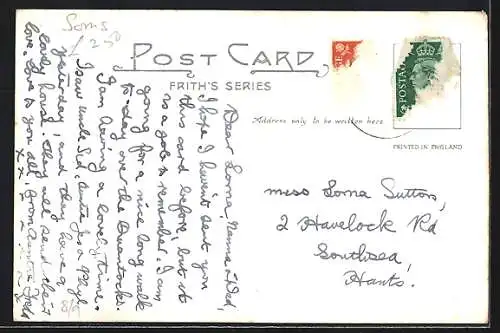 Soms
£2.50
POST CARD
FRITH'S SERIES
Address only to be written here
POSTAG
PRINTED IN ENGLAND
Dear Lorna, Nanna & Dad,
I hope I haven't sent you
this card before, but it
is a job to remember. I am
going for a nice long walk
to-day over the Quantocks.
I am having a lovely time.
I saw Uncle Sid, Auntie Jess & Phyl
yesterday, and they have a
lovely house. They all send their
love. Love to you all, from Auntie
x x x x x x
8/9
Miss Lorna Sutton,
2 Havelock Rd
Southsea,
Hants.